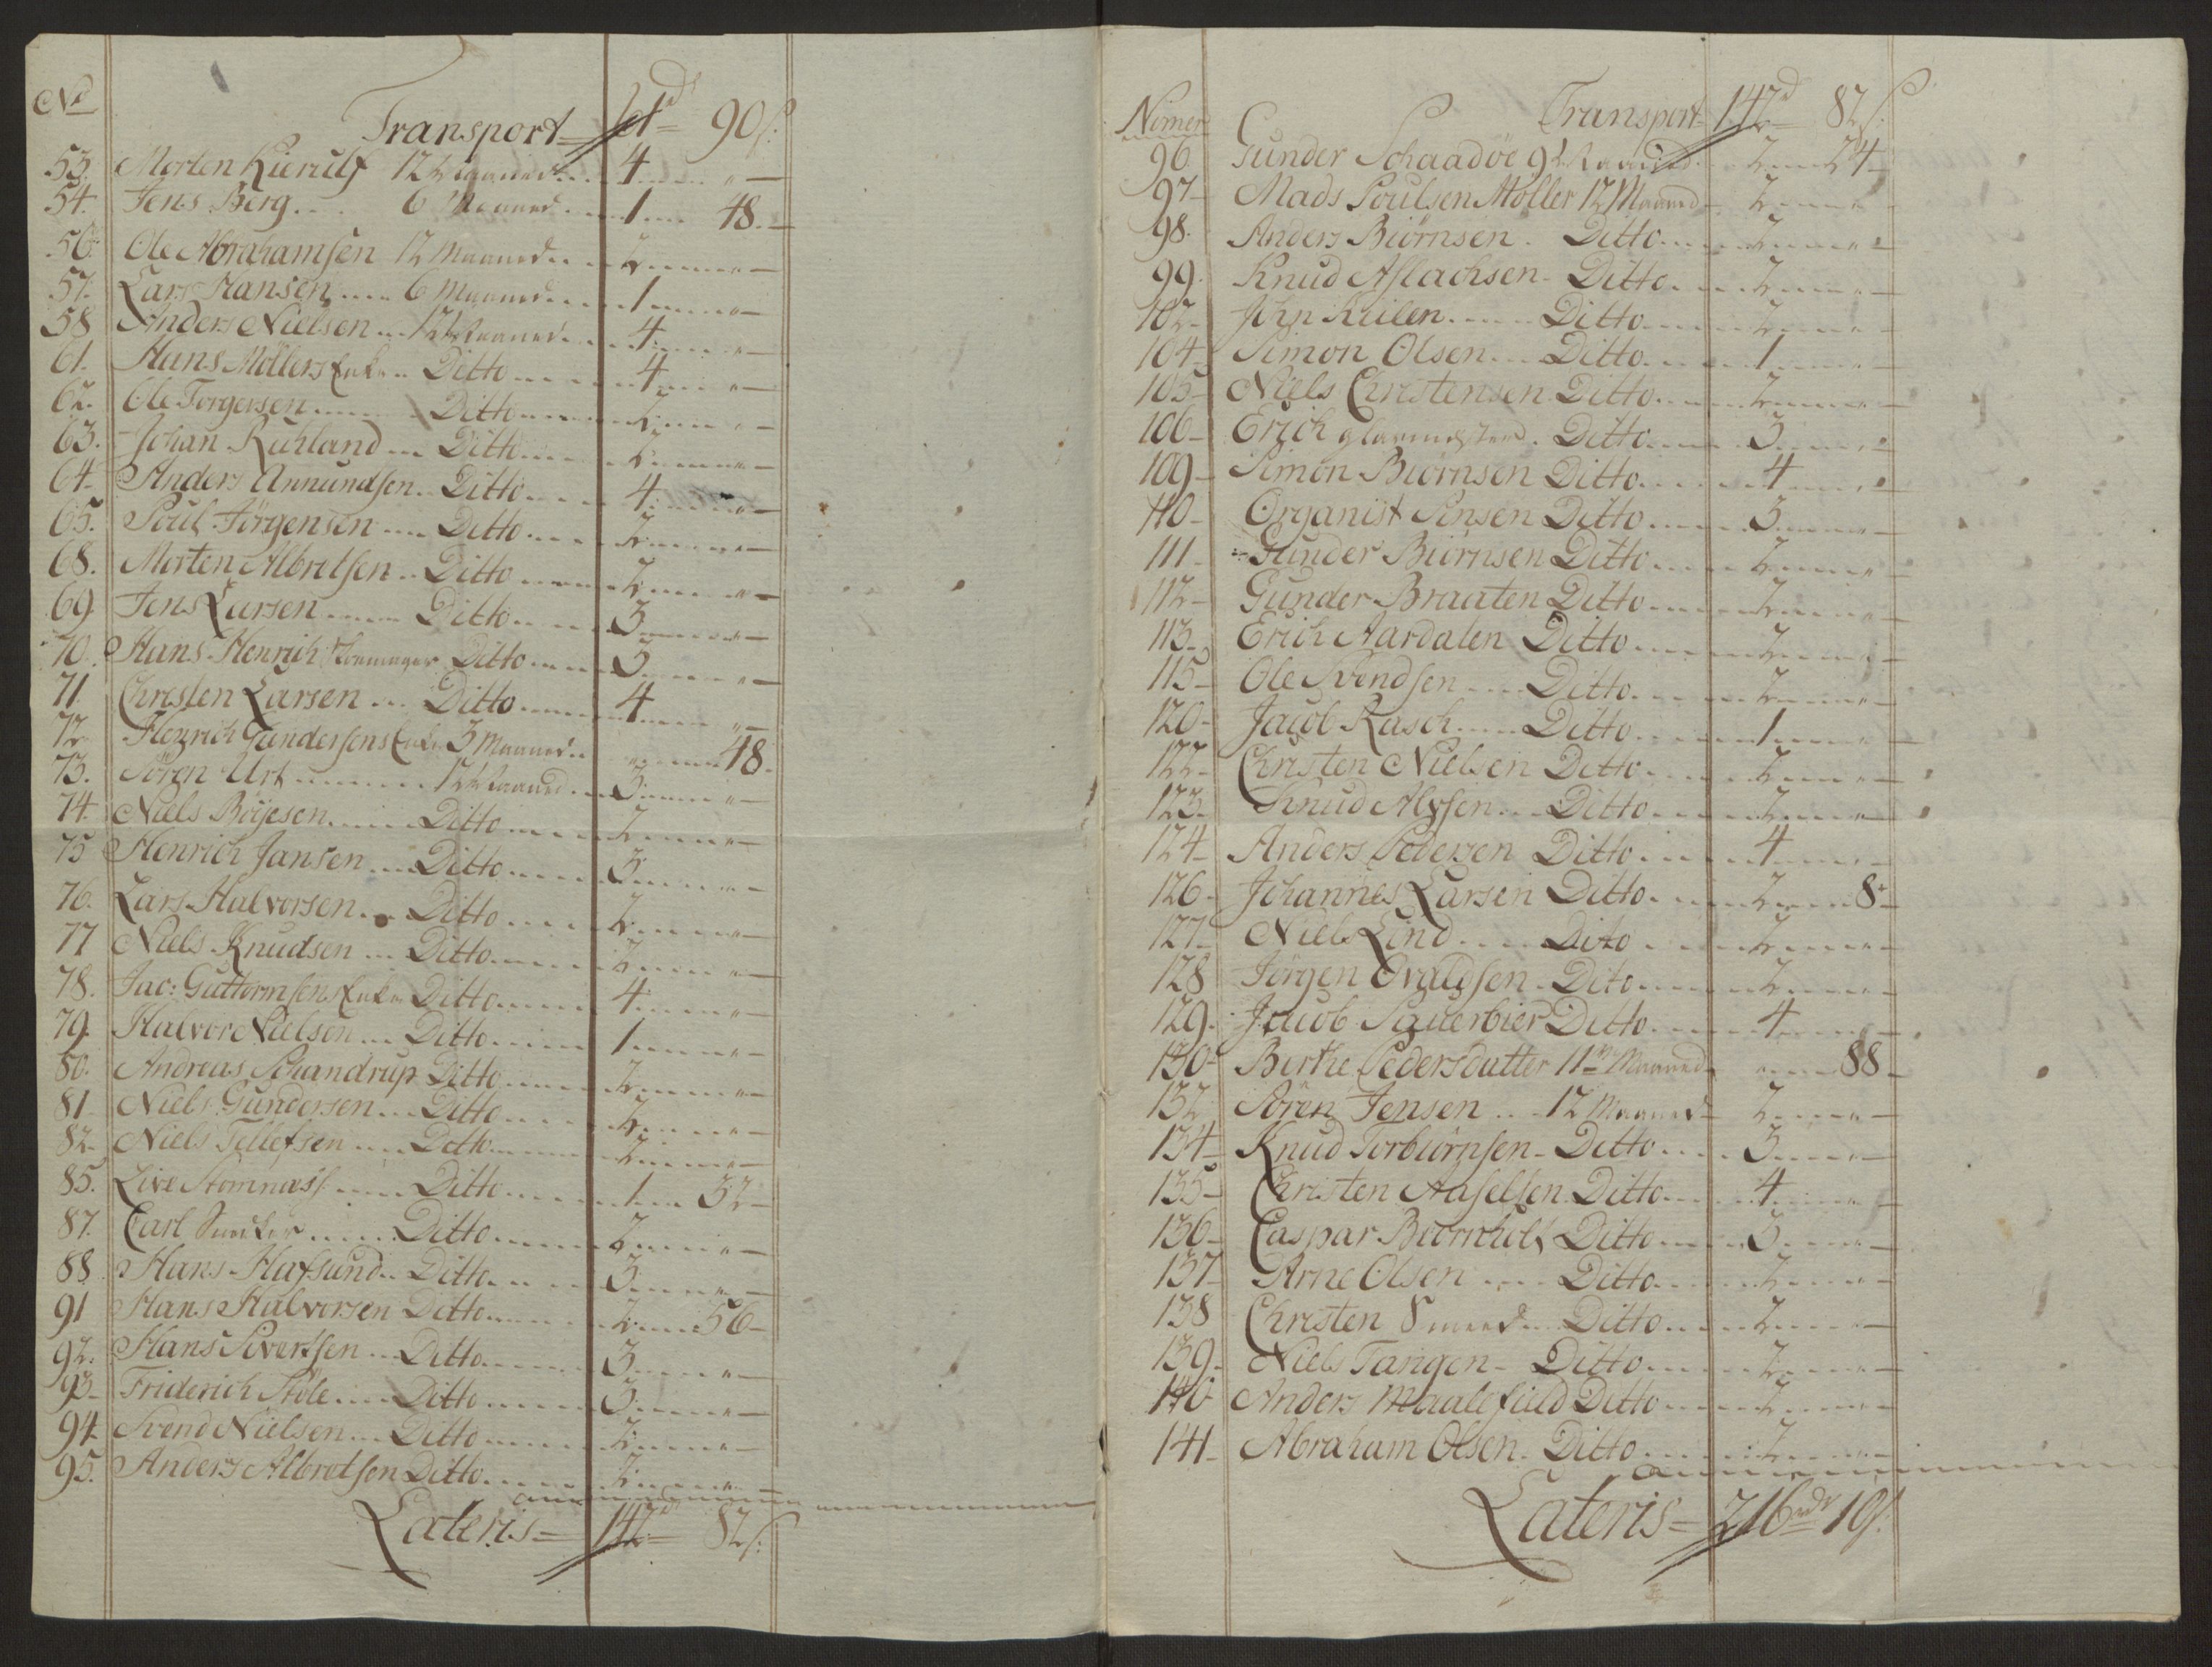 No
Transport 90 s:
53. Morten Kierulf 12 Maaned 4 " -
54. Jens Berg 6 Maaned 1 48. -
56. Ole Abrahamsen 12 Maaned 2 " -
57. Lars Hansen 6 Maaned 1 " -
58 Anders Nielsen 12 Maaned 4 " -
61. Hans Möllers Enke Ditto 4 " -
62. Ole Torgersen Ditto 2 " -
63. Johan Ruhland Ditto 2 " -
64. Anders Annundsen Ditto 4 " -
65. Poul Jörgensen Ditto 2 " -
68. Morten Albretsen Ditto 2 " -
69 Jens Larsen Ditto 3 " -
70. Hans Henrich Ditto 3 " -
71 Christen Larsen Ditto 4 " -
72 Henrich Gundersens Enke 3 Maaned " 48.
73. Sören Urt 12 Maaned 3 " -
74. Niels Böyesen Ditto 2 " -
75 Henrich Jansen Ditto 3 " -
76. Lars Halvorsen Ditto 2 " -
77 Niels Knudsen Ditto 2 " -
78. Jac: Guttormsens Enke Ditto 4 " -
79. Halvor Nielsen Ditto 1 " -
80. Andreas Schandrup Ditto 2 " -
81 Niels Gundersen Ditto 2 " -
82 Niels Tellefsen Ditto 2 " -
85. Live Ditto 1 32 -
87. Carl Ditto 2 " -
88 Hans Hafsund Ditto 3 " -
91 Hans Halvorsen Ditto 2 56 -
92. Hans Sivertsen Ditto 3 " -
93 Friderich Stöle Ditto 3 " -
94 Svend Nielsen Ditto 2 " -
95. Anders Albretsen Ditto 2 " -
Lateris 142 d 82 s:
Nimer
Transport 142 d 82 s:
96 Gunder Schaadöe 9 Maaned 2 24
97 Mads Poulsen Möller 12 Maaned 2 " -
98. Anders Biörnsen Ditto 2 " -
99. Knud Aslachsen Ditto 2 " -
102 John Keilen Ditto 2 " -
104 Simon Olsen Ditto 1 " -
105 Niels Christensen Ditto 2 " -
106 Erich glarmester Ditto 3 " -
109 Simon Biörnsen Ditto 4 " -
110 Organist Ditto 3 " -
111 Gunder Biörnsen Ditto 2 " -
112 Gunder Braaten Ditto 2 " -
113 Erich Aardalen Ditto 2 " -
115 Ole Svendsen Ditto 2 " -
120 Jacob Rasch Ditto 1 " -
122 Christen Nielsen Ditto 2 " -
123 Knud Alfsen Ditto 2 " -
124 Anders Pedersen Ditto 4 " -
126 Johannes Larsen Ditto 2 8 -
127 Niels Lind Dito 2 " -
128 Jörgen Evaldsen Dito 2 " -
129. Jacob Sauerbier Ditto 4 " -
130 Birthe Pedersdatter 11 Maaned " 88 -
132 Sören Jensen 12 Maaned 2 " -
134 Knud Torbiörnsen Ditto 3 " -
135 Christen Ditto 4 " -
136 Caspar Biörnholt Ditto 3 " -
137 Arne Olsen Ditto 2 " -
138 Christen Smeed Ditto 2 " -
139. Niels Tangen Ditto 2 " -
140 Anders Ditto 2 " -
141 Abraham Olsen Ditto 2 " -
Lateris 216 rdr 10 s: